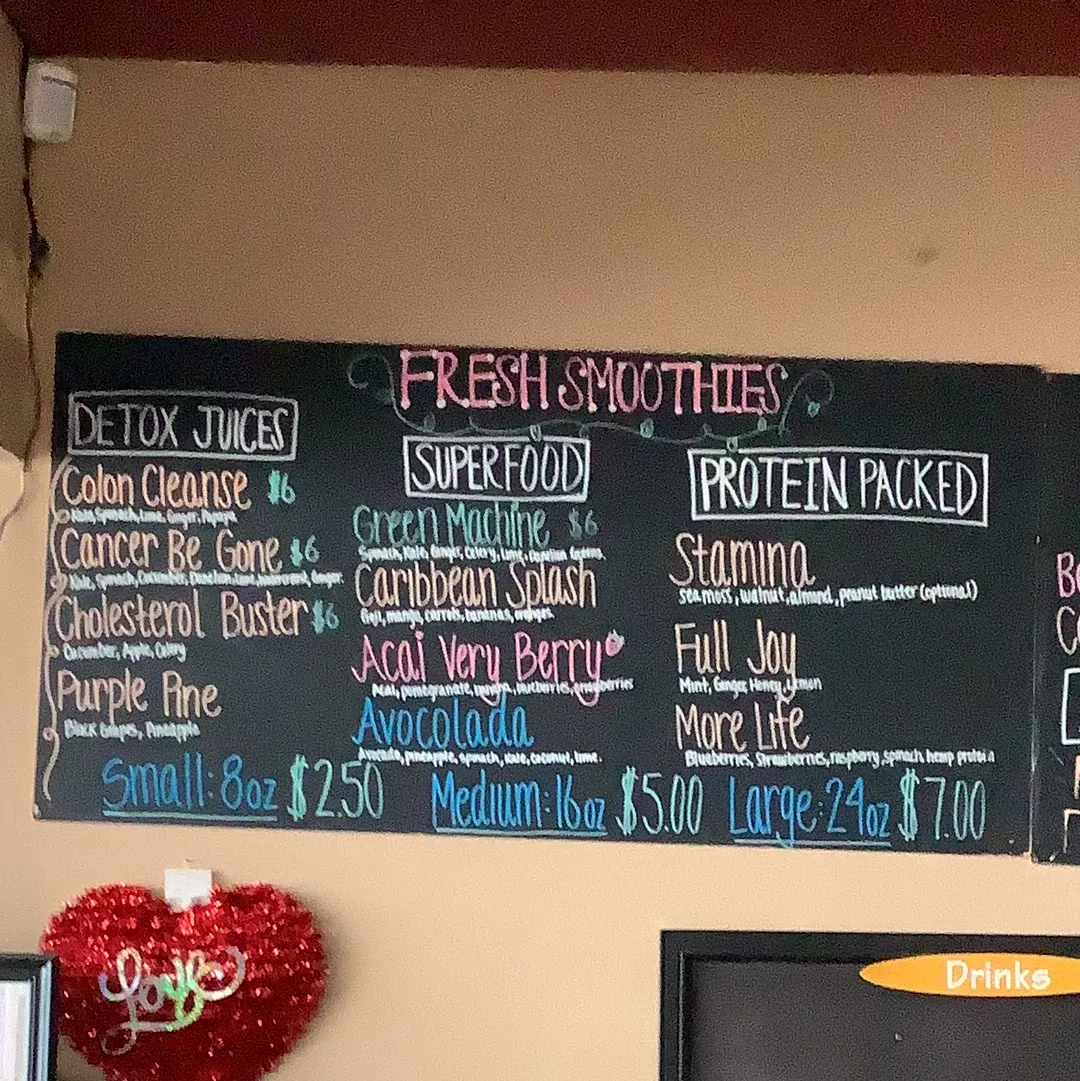 FRESH SMOOTHIES
DETOX JUICES
Colon Cleanse $6
Kale, Spinach, Lime, Ginger, Papaya
Cancer Be Gone $6
Kale, Spinach, Cucumber, Ginger
Cholesterol Buster $6
Cucumber, Apple, Celery
Purple Pine
Black Grapes, Pineapple
SUPERFOOD
Green Machine $6
Spinach, Kale, Ginger, Celery, Lime, Greens
Caribbean Splash
Goji, mango, carrots, bananas, oranges
Acai Very Berry
Acai, pomegranate, blueberries,
Avocolada
Avocado, pineapple, spinach, kale, coconut, lime.
PROTEIN PACKED
Stamina
sea moss, walnut, almond, peanut butter (optional)
Full Joy
Mint, Ginger, Honey, Lemon
More Life
Blueberries, Strawberries, raspberry, spinach, hemp protein
Small: 8oz $2.50 Medium: 16oz $5.00 Large: 24oz $7.00
Love
Drinks